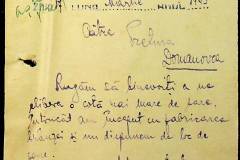 LUNA Martie ANUL 1943
Către
Pretura
Domanovca
Rugăm să binevoiți a ne
elibera o cotă mai mare de sare
întrucât am început cu fabricarea
brânzei și nu dispunem de loc de
sare.